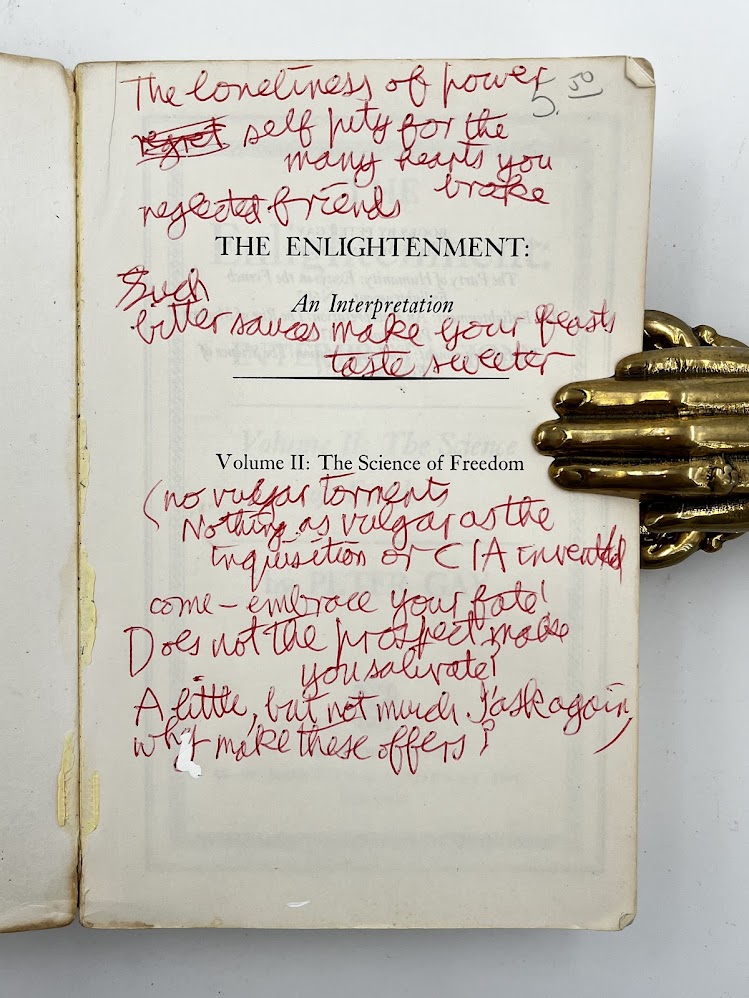 The loneliness of power
5.50
regret self pity for the
many hearts you
broke
neglected friends
THE ENLIGHTENMENT:
Such
An Interpretation
bitter sauces make your feasts
taste sweeter
Volume II: The Science of Freedom
(no vulgar torments
Nothing as vulgar as the
inquisition or CIA invented
come – embrace your fate!
Does not the prospect make
you salivate?
A little, but not much I ask again,
why make these offers?